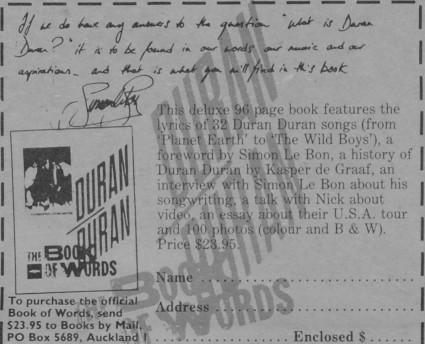 If we do have any answers to the question "what is Duran
Duran?" it is to be found in our words our music and our
aspirations - and that is what you will find in this book
Simon Le Bon
This deluxe 96 page book features the
lyrics of 32 Duran Duran songs (from
'Planet Earth' to 'The Wild Boys'), a
foreword by Simon Le Bon, a history of
Duran Duran by Kasper de Graaf, an
interview with Simon Le Bon about his
songwriting, a talk with Nick about
video, an essay about their U.S.A. tour
and 100 photos (colour and B & W).
Price $23.95.
DURAN
DURAN
THE BOOK
OF WORDS
To purchase the official
Book of Words, send
$23.95 to Books by Mail,
PO Box 5689, Auckland 1
Name . . . . . . . . . . . . . . . . . . . . . . . .
Address . . . . . . . . . . . . . . . . . . . . . .
. . . . . . . . . . . . Enclosed $ . . . . . .
DURAN
DURAN
THE BOOK
OF WORDS